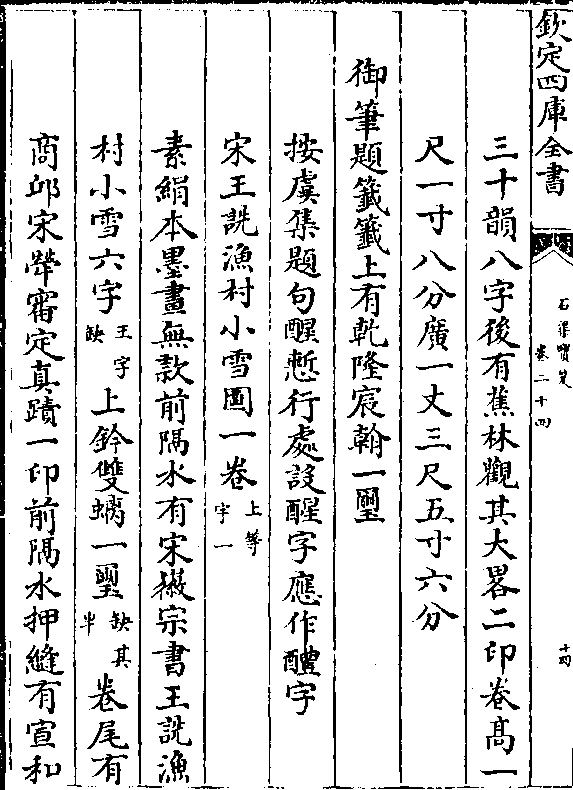 欽定四庫全書
石渠寶笈
卷二十四
十四
三十韻八字後有蕉林觀其大畧二印卷髙一
尺一寸八分廣一丈三尺五寸六分
御筆題籤籤上有乾隆宸翰一璽
按虞集題句醒慙行處設醒字應作醴字
宋王詵漁村小雪圖一卷
上等
字一
素絹本墨畫無款前隔水有宋徽宗書王詵漁
村小雪六字
王字
缺
上鈐雙螭一璽
缺其
半
卷尾有
商邱宋犖審定真蹟一印前隔水押縫有宣和